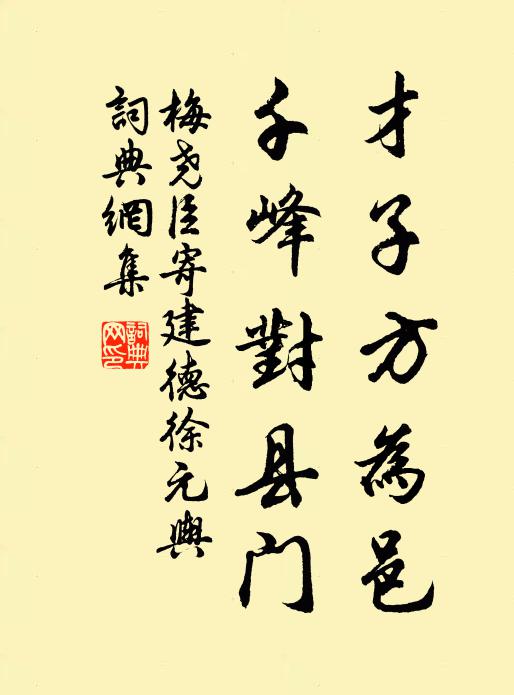 才子方為邑
千峰對县门
梅尧臣寄建德徐元輿
詞典網集
詞典
网印